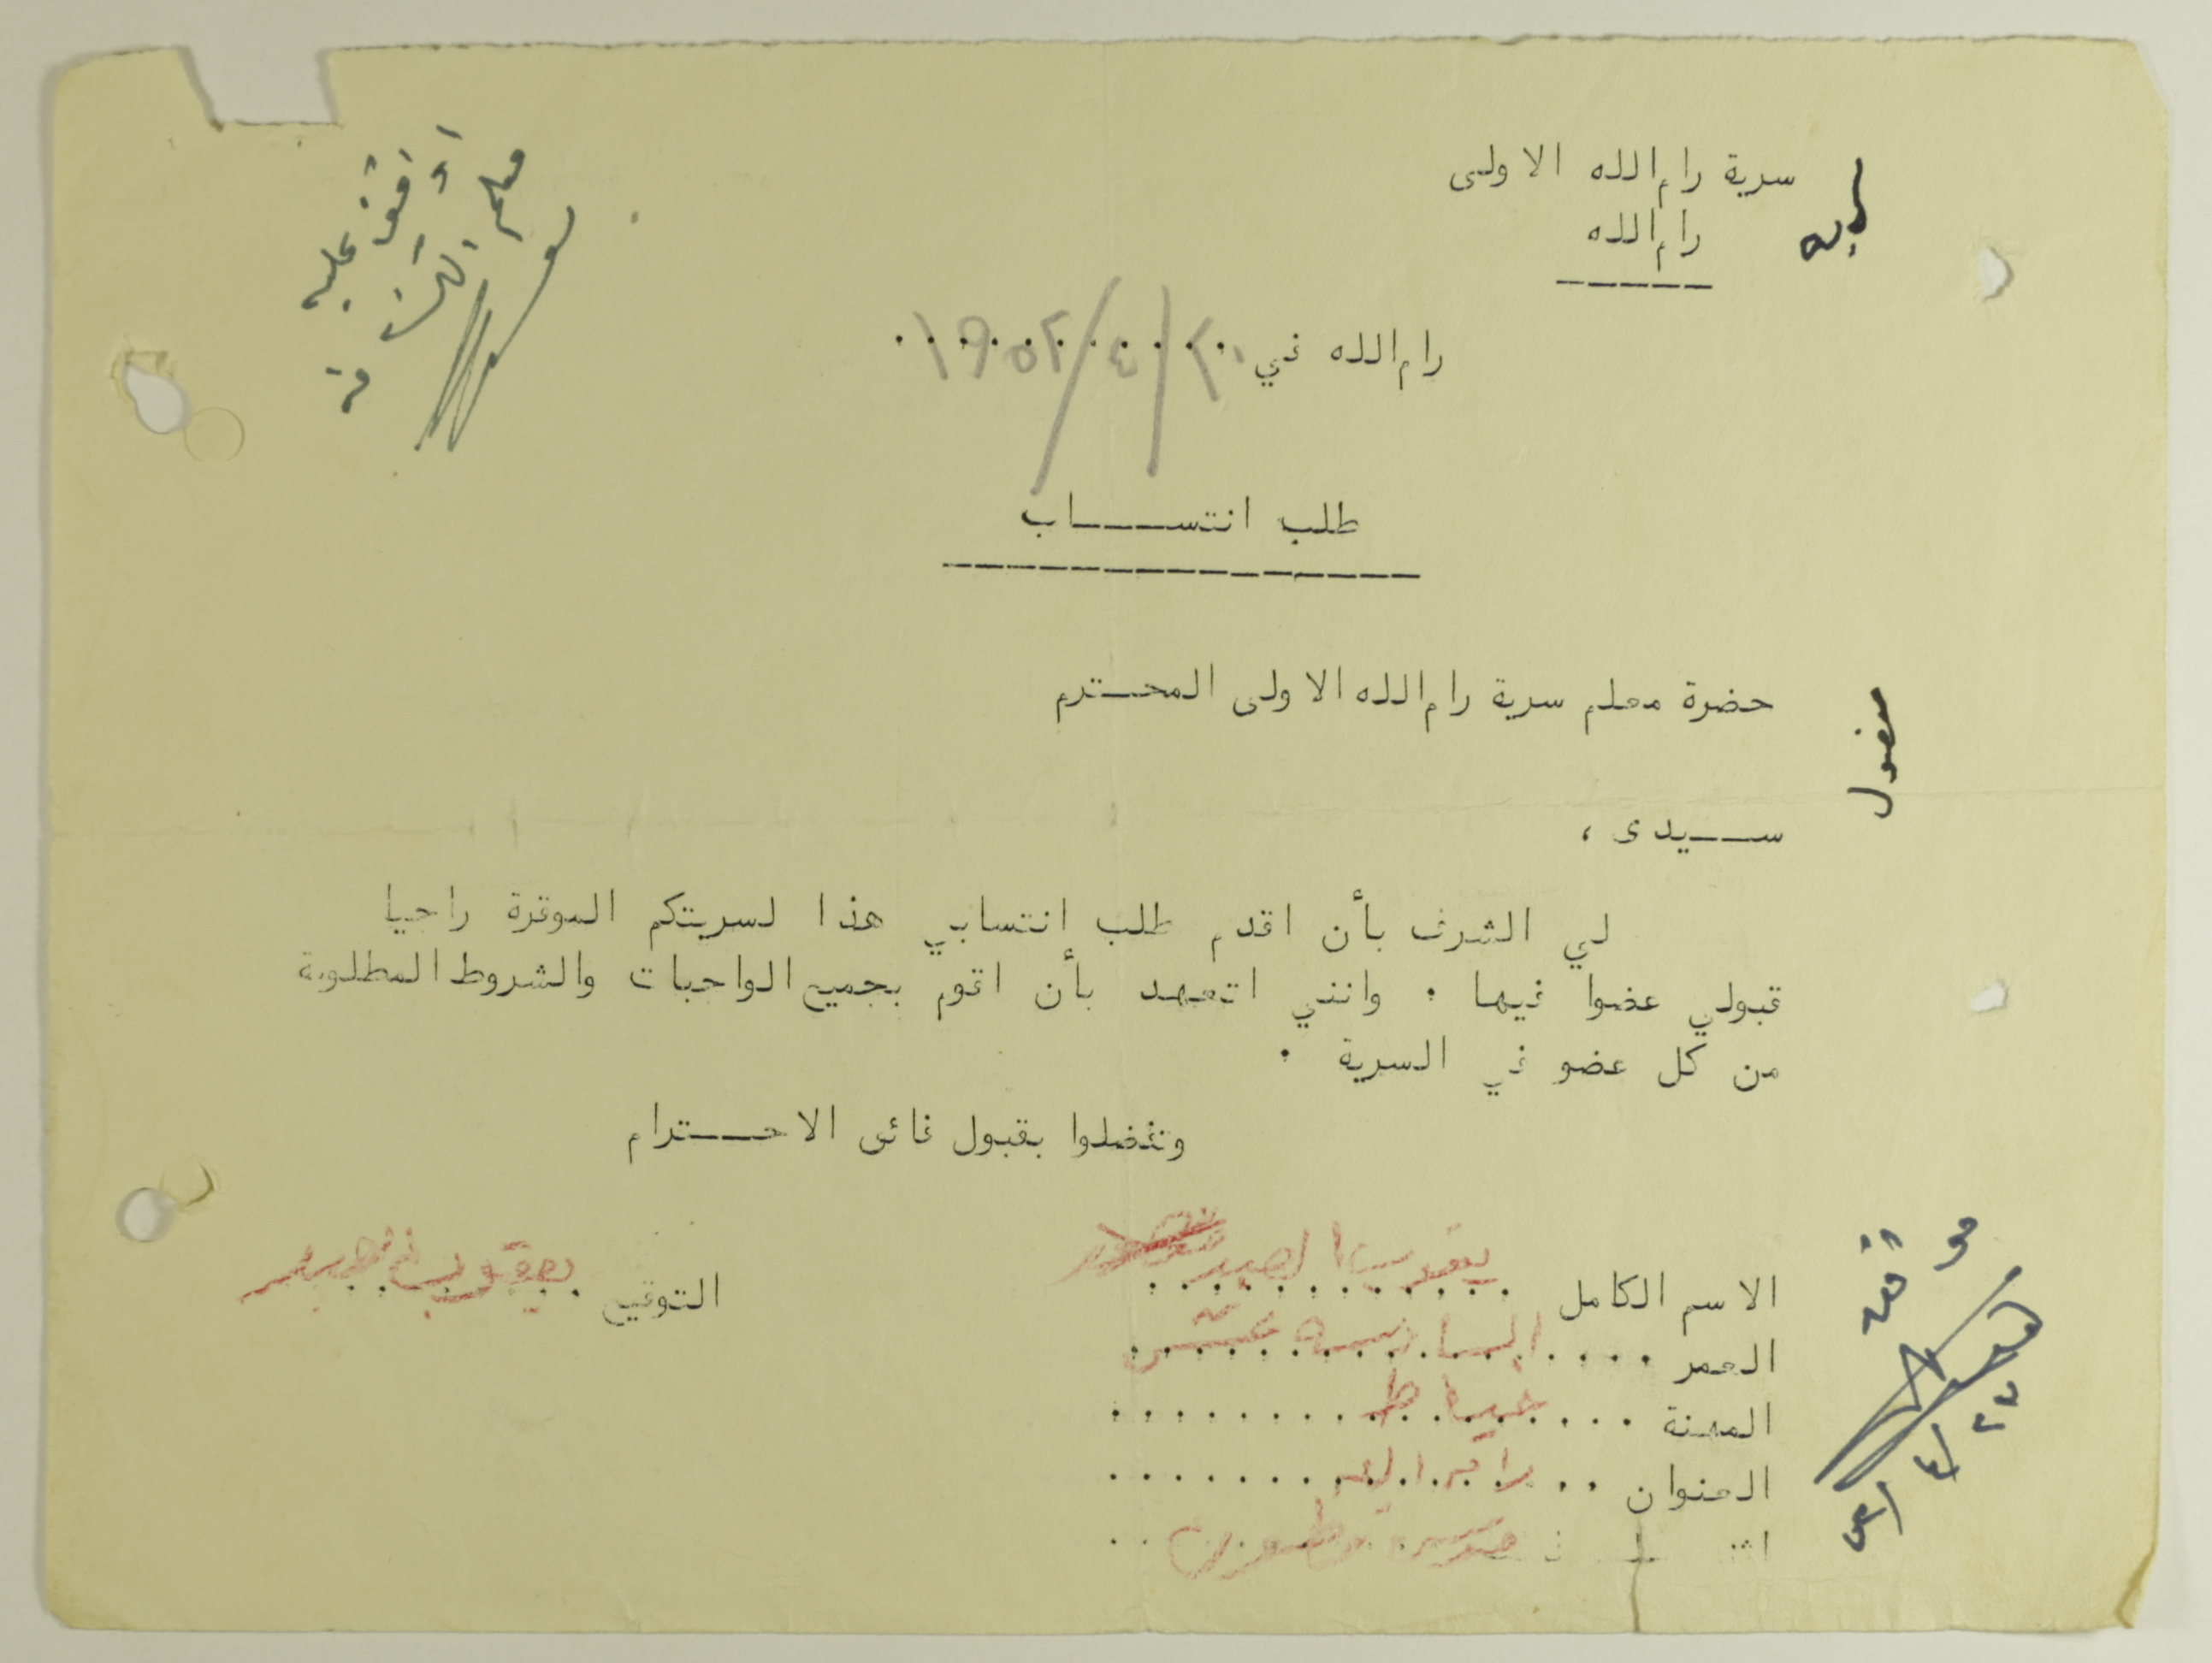 سرية رام الله الاولى
رام الله
سرية
اوافق عليه
معلم الكشافة
رام الله في ٢٠/٤/١٩٥٢
طلب انتساب
حضرة معلم سرية رام الله الاولى المحترم
مقبول
سيدى ،
لي الشرف بأن اقدم طلب انتسابي هذا لسريتكم الموقرة راجيا
قبولي عضوا فيها . وانني اتعهد بأن اقوم بجميع الواجبات والشروط المطلوبة
من كل عضو في السرية .
وتفضلوا بقبول فائق الاحترام
الاسم الكامل يعقوب
التوقيع يعقوب
العمر السادسه عشر
المهنة خياط
العنوان رام الله
موافق